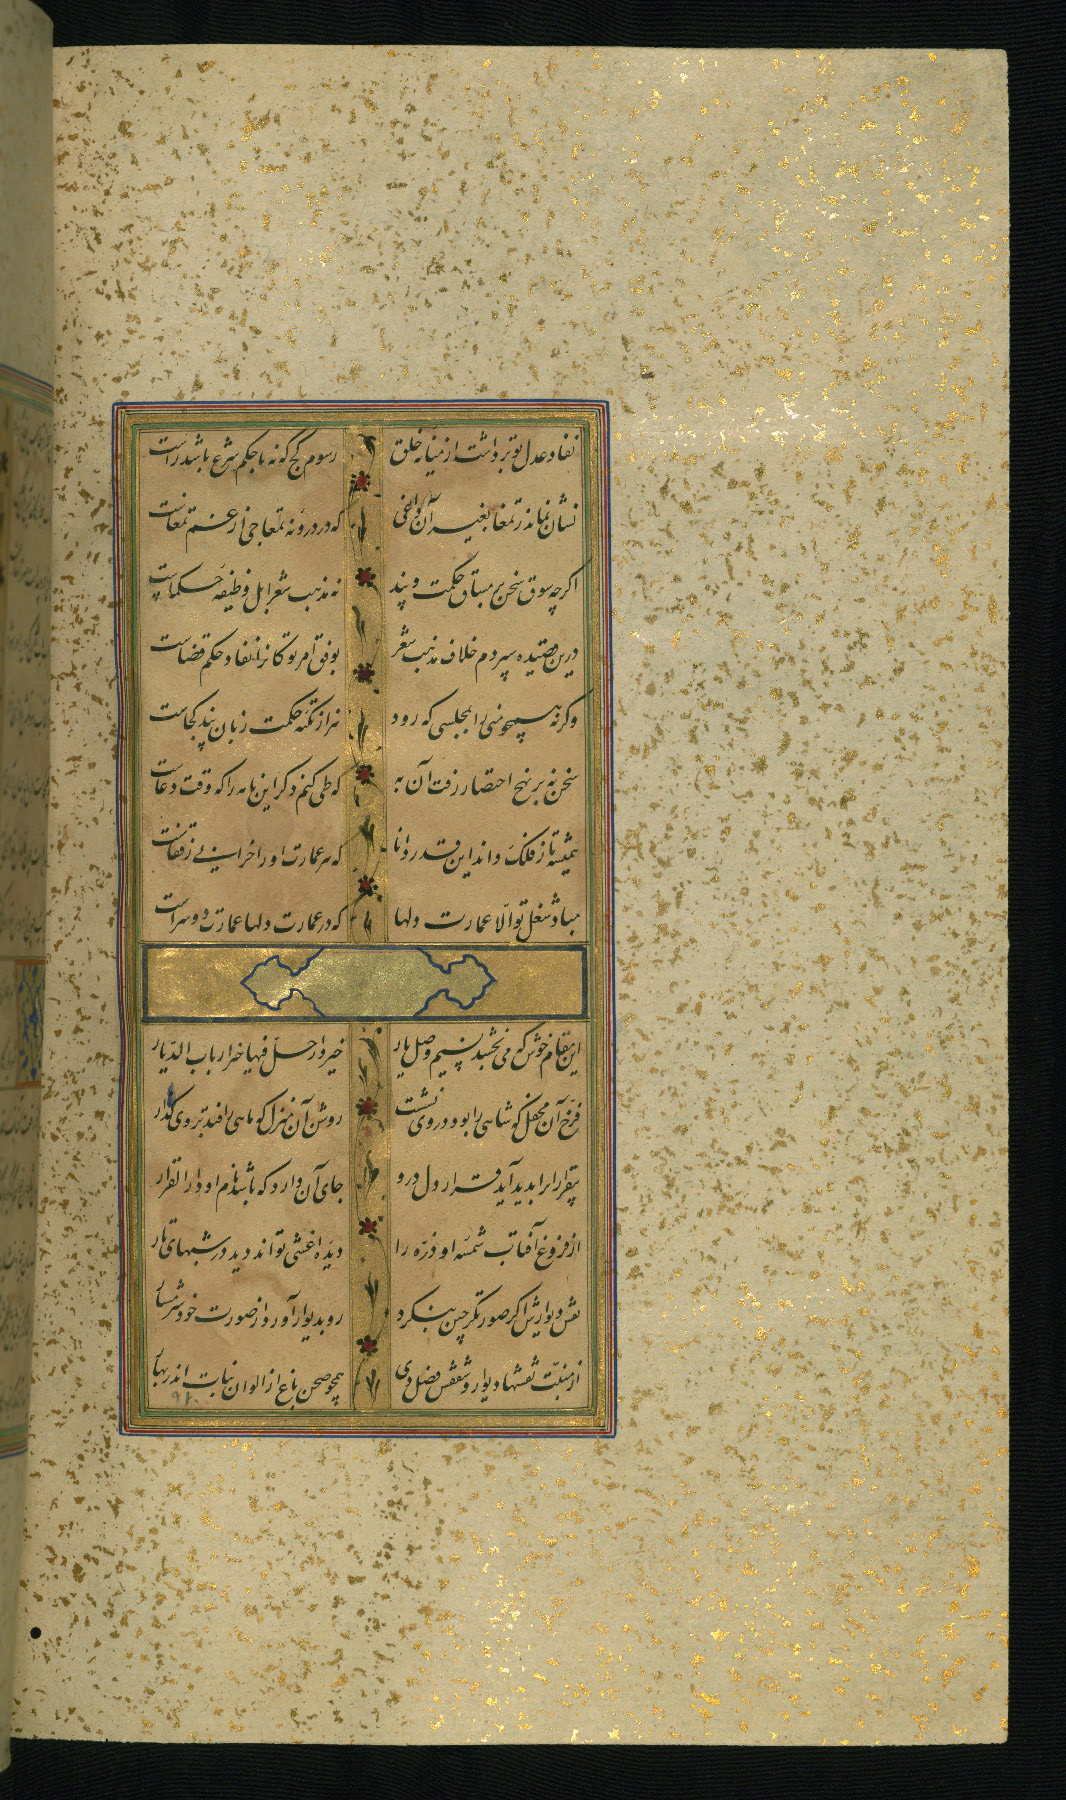 نفاذ عدل تو برداشت از میانه خلق رسوم کج که نه با حکم شرع باشد راست
نشان نماند ز تمغا بغیر آن داغی که در درونه تمغاچی از غم تمغاست
اگرچه سوق سخن بر مساق حکمت و پند نه مذهب شعرا بل وظیفه حکماست
درین قصیده سپردم خلاف مذهب شعر بوفق امر تو کانرا نفاد حکم قضاست
وگرنه همچو منی را بمجلسی که رود هزار نکته حکمت زبان پند کجاست
سخن نه بر نهج اختصار رفت آن به که طی کنم دگر این نامه را که وقت دعاست
همیشه تا ز فلک داند این قدر دانا که هر عمارت او را خرابیی ز قفاست
مباد شغل تو الا عمارت دلها که در عمارت دلها عمارت دوسراست
این مقام خوش که می بخشد نسیم وصل یار خیر دار حل فیها خیر ارباب الدیار
فرخ آن محفل که شاهی را بود در وی نشست روشن آن منزل که ماهی را فتد بر وی گذار
بیقراران را پدید آید قرار دل درو جای آن دارد که باشد نام او دار القرار
از فروغ آفتاب شمسه او ذره را دیده اعشی تواند دید در شبهای تار
نقش دیوارش اگر صورتگر چین بنگرد رو بدیوار آورد از صورت خود شرمسار
از منبت نقشها دیوار و سقفش فصل دی همچو صحن باغ از الوان نبات اندر بهار